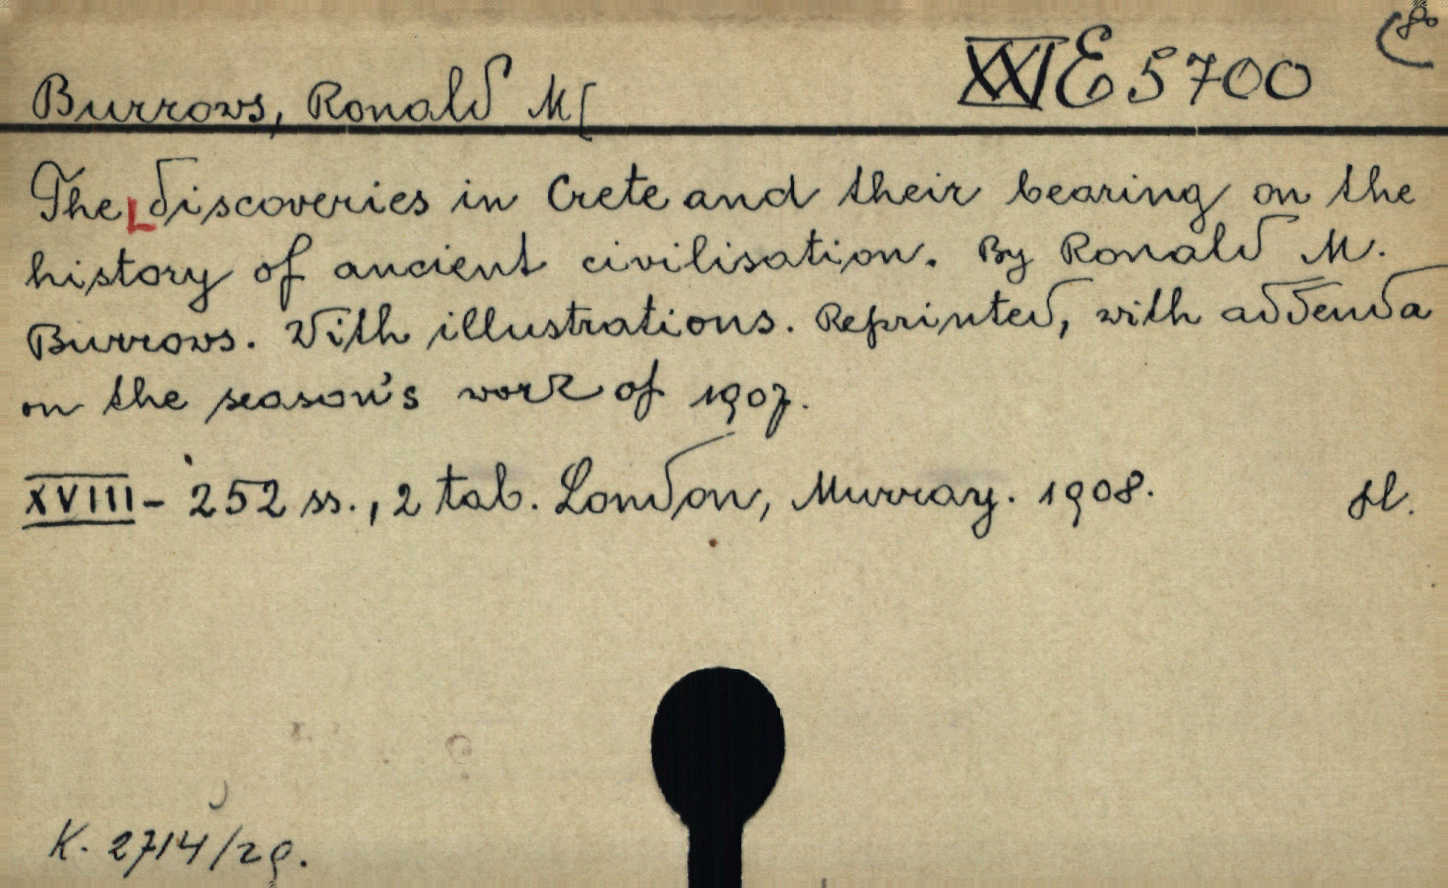 XXI E 5700
8o
Burrows, Ronald M[
The discoveries in Crete and their bearing on the
history of ancient civilisation. By Ronald M.
Burrows. With illustrations. Reprinted, with addenda
on the season's work of 1907.
XVIII - 252 ss., 2 tab. London, Murray. 1908.
K. 2714/29.